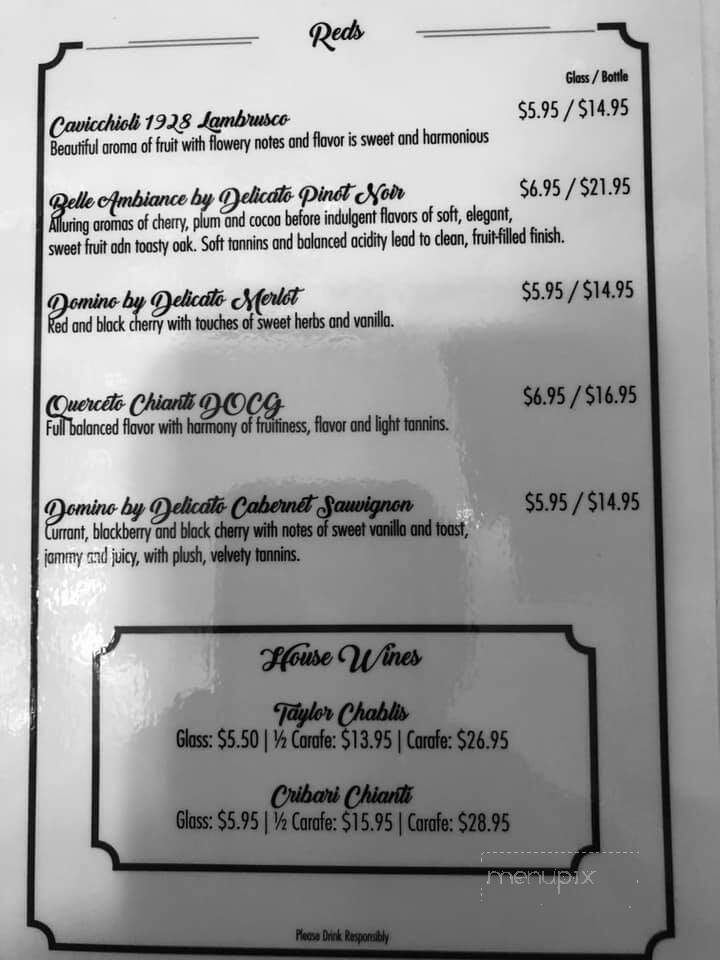 Reds
Glass / Bottle
Cavicchioli 1928 Lambrusco $5.95 / $14.95
Beautiful aroma of fruit with flowery notes and flavor is sweet and harmonious
Belle Ambiance by Delicato Pinot Noir $6.95 / $21.95
Alluring aromas of cherry, plum and cocoa before indulgent flavors of soft, elegant,
sweet fruit adn toasty oak. Soft tannins and balanced acidity lead to clean, fruit-filled finish.
Domino by Delicato Merlot $5.95 / $14.95
Red and black cherry with touches of sweet herbs and vanilla.
Querceto Chianti DOCG $6.95 / $16.95
Full balanced flavor with harmony of fruitiness, flavor and light tannins.
Domino by Delicato Cabernet Sauvignon $5.95 / $14.95
Currant, blackberry and black cherry with notes of sweet vanilla and toast,
jammy and juicy, with plush, velvety tannins.
House Wines
Taylor Chablis
Glass: $5.50 | ½ Carafe: $13.95 | Carafe: $26.95
Cribari Chianti
Glass: $5.95 | ½ Carafe: $15.95 | Carafe: $28.95
menupix
Please Drink Responsibly